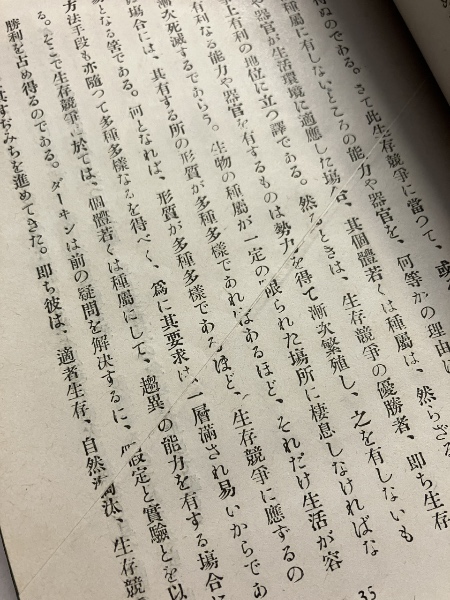 得るのである。さて此生存競爭に當つて、或
種屬に有しないところの能力や器官を、何等かの理由
や器官が生活環境に適應した場合、其個體若くは種屬は、然らざる
上有利の地位に立つ譯である。然るときは、生存競爭の優勝者、即ち生存
有利なる能力や器官を有するものは勢力を得て漸次繁殖し、之を有しないも
漸次死滅するであらう。生物の種屬が一定の限られた場所に棲息しなければな
場合には、其有する所の形質が多種多樣であればあるほど、それだけ生活が容
なる筈である。何となれば、形質が多種多樣であるほど、生存競爭に應ずるの
方法手段も亦隨つて多種多樣なるを得べく、爲に其要求は、一層滿され易いからであ
る。そこで生存競爭に於ては、個體若くは種屬にして、趨異の能力を有する場合に
勝利を占め得るのである。ダーヰンは前の疑問を解決するに、假設定と實驗とを以
すぢみちを進めてきた。即ち彼は、適者生存、自然淘汰、生存競
35